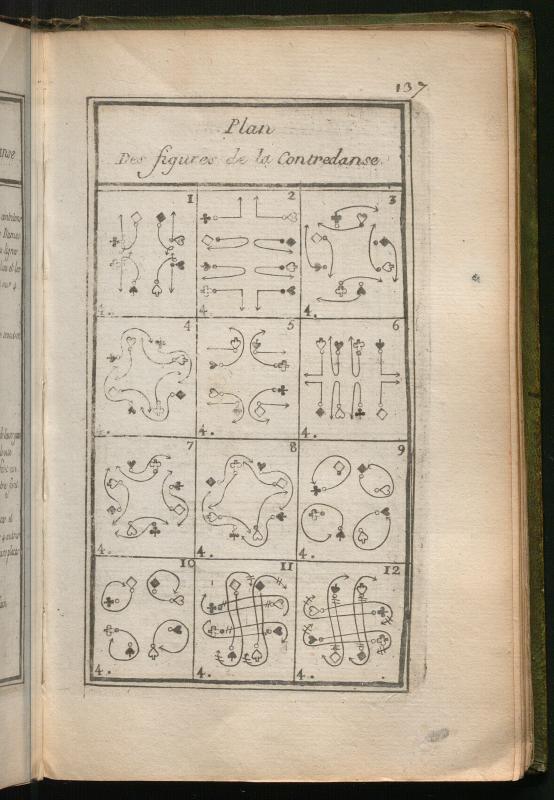 137
Plan
Des figures de la Contredanse.
1 2 3
4. 4. 4.
4 5 6
4. 4. 4.
7 8 9
4. 4. 4.
10 11 12
4. 4. 4.